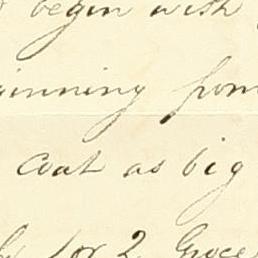 begin with
inning from
coat as big
for 2 Groce